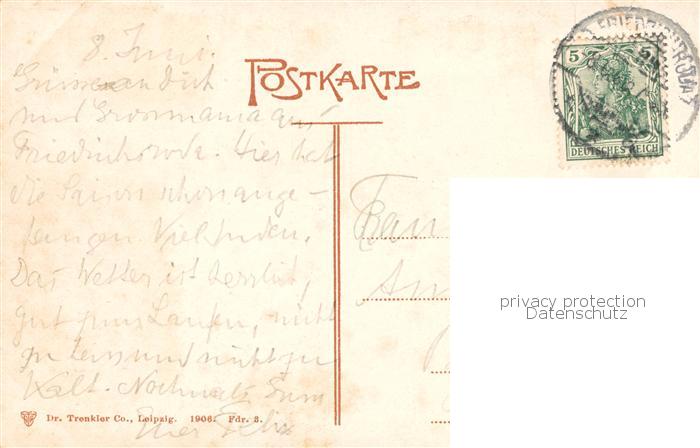 8. Juni.
POSTKARTE
an Dich
und Grossmama aus
Friedrichroda. Hier hat
die Saison schon ange-
fangen.
Das Wetter ist herrlich,
gut zum Laufen, nicht
zu heiss und nicht zu
Kalt. Nochmals
Euer Felix
Frau
An
5 5
DEUTSCHES REICH
FRIEDRICHRODA
privacy protection
Datenschutz
Dr. Trenkler Co., Leipzig. 1906. Fdr. 3.